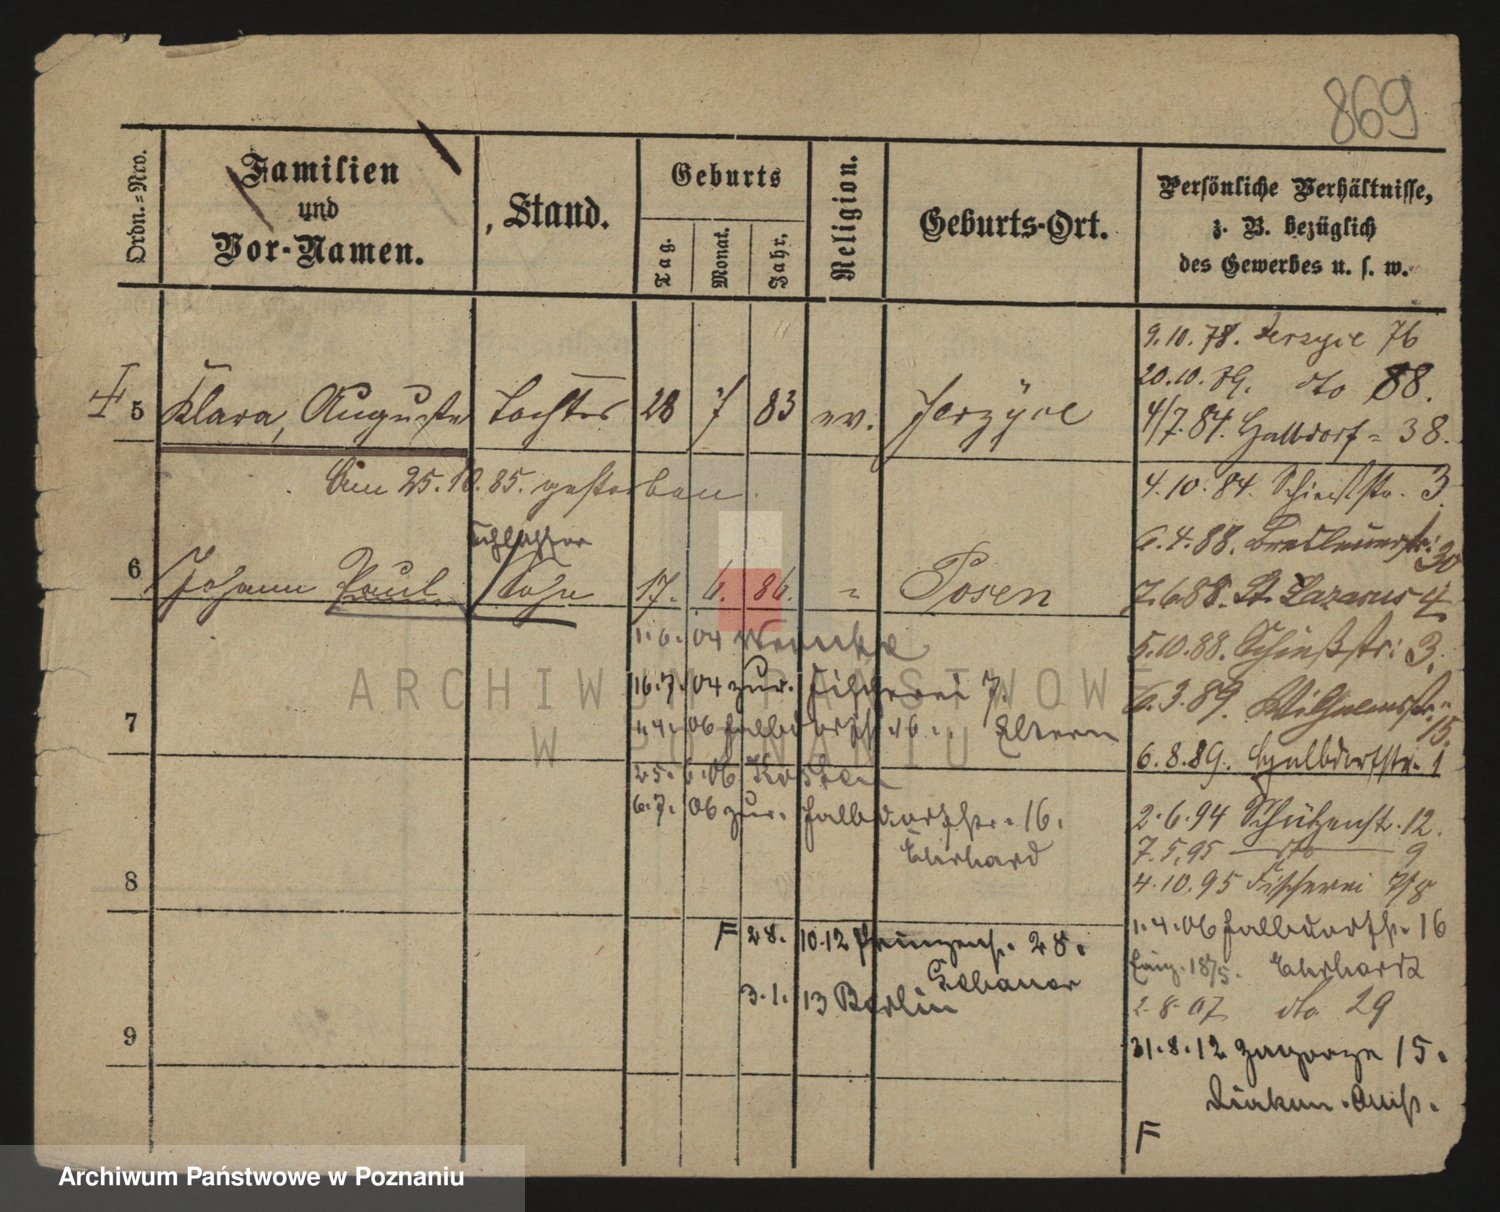 869
Ordn.=Nro.
Familien
und
Vor-Namen.
Stand.
Geburts
Tag.
Monat.
Jahr.
Religion.
Geburts-Ort.
Persönliche Verhältnisse,
z. B. bezüglich
des Gewerbes u. s. w.
5 Klara, Auguste Tochter 28 7 83 ev. Jerzyce
Am 25.10.85. gestorben.
6 Johann Paul Sohn 17. 6. 86. " Posen
1.6.04
16.7.04 zur. Fischerei 7.
1.4.06 Halbdorfstr 16 Eltern
25.6.06 Kosten
6.7.06 zur. Halbdorfstr. 16.
Ehrhard
7
8
F 28.10.12 Prinzenstr. 28.
3.1.13 Berlin
9
9.10.78. Jerzyce 76
20.10.79. dto 88.
4/7.84. Halbdorf= 38.
4.10.84. Schießstr. 3
6.4.88. Breslauerstr: 30
7.6.88. St. Lazarus 4
5.10.88. Schießstr: 3.
6.3.89. Wilhelmstr. 15.
6.8.89. Halbdorfstr. 1
2.6.94 Schützenstr. 12.
7.5.95 dto 9
4.10.95 Fischerei 7/8
1.4.06 Halbdorfstr. 16
Ehrhardt
2.8.07 dto 29
31.8.12 Zagorze 15.
Diakon. Anst.
F
ARCHIWUM PAŃSTWOWE
W POZNANIU
Archiwum Państwowe w Poznaniu